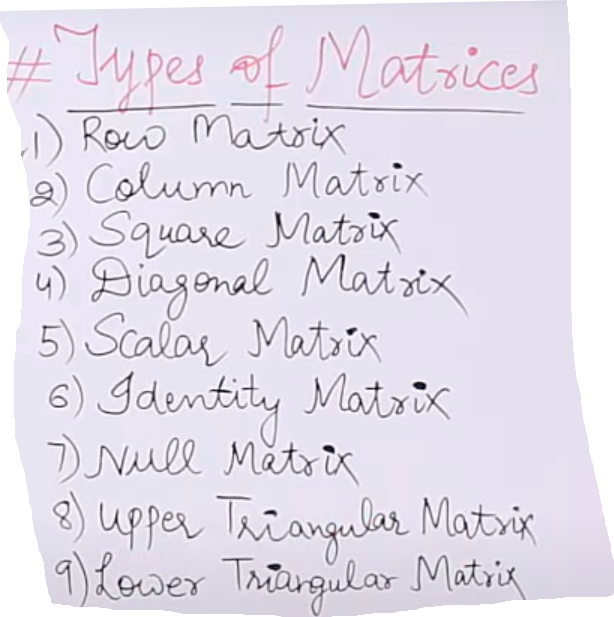 # Types of Matrices
1) Row Matrix
2) Column Matrix
3) Square Matrix
4) Diagonal Matrix
5) Scalar Matrix
6) Identity Matrix
7) Null Matrix
8) Upper Triangular Matrix
9) Lower Triangular Matrix